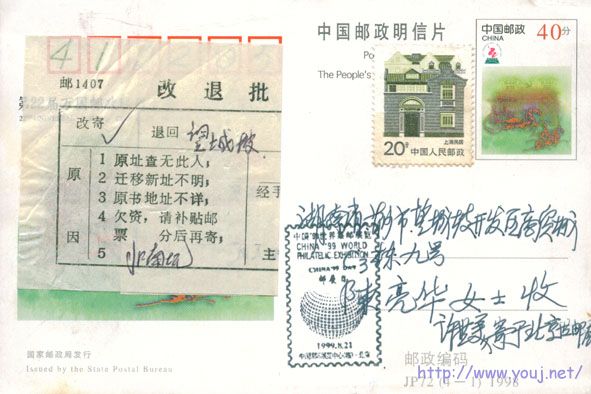 4 1
中国邮政明信片
Po
The People's
中国邮政
CHINA
40分
邮1407
改退批
第22届万国邮
改寄
退回
望城坡
原
因
1 原址查无此人；
2 迁移新址不明；
3 原书地址不详；
4 欠资，请补贴邮
票 分后再寄；
5
经手
主
上海民居
20分
中国人民邮政
开发区商贸
三栋九号
陈亮华女士收
寄于北京
中国'99世界集邮展览
CHINA'99 WORLD
PHILATELIC EXHIBITION
CHINA'99 DAY
邮展日
1999.8.21
国家邮政局发行
Issued by the State Postal Bureau
邮政编码
JP72 (4-1) 1998
http://www.youj.net/